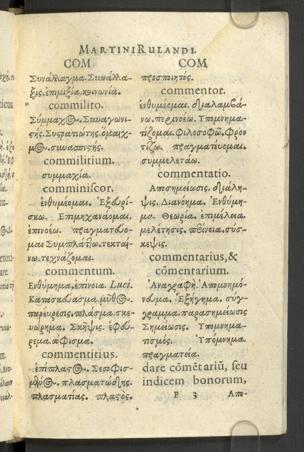 MARTINI RULANDI.
COM
Συνάλλαγμα. Συνάλλα-
ξις. ἐπιμιξία. κοινωνία.
commilito.
Σύμμαχος. Συναγωνι-
στής. Συστρατιώτης. ὁμαιχ-
μος. συνασπιστής.
commilitium.
συμμαχία.
comminiscor.
ἐνθυμέομαι. Ἐξευρί-
σκω. Επιμηχανάομαι.
ἐπινοέω. πραγματεύο-
μαι Συμπλάττω. τεκταί-
νω. τεχνάζομαι.
commentum.
Ενθύμημα. ἐπίνοια. Luci.
Κατασκεύασμα. μῦθος.
παρεύρεσις. πλάσμα. σκε-
υώρημα. Σκῆψις. ἐφεύ-
ρεμα. σόφισμα.
commentitius.
ἐπίπλαστος.
πλασματώδης.
πλασματίας. πλαστός.
COM
προσποιητός.
commentor.
ἐνθυμέομαι. διαλαμβά-
νω. περινοέω. Υπομνημα-
τίζομαι. Φιλοσοφῶ. Φρον
τίζω. πραγματεύομαι.
συμμελετάω.
commentatio.
Αποσημείωσις. διάλη-
ψις. Διανόημα. Ενθύμη-
μα. Θεωρία. ἐπιμέλεια.
μελέτησις. σύσ-
κεψις.
commentarius, &
cōmentarium.
Ἀναγραφή. Απομνημό-
νευμα. Εξήγημα. σύγ-
γραμμα. παρασημείωσις
Σημείωσις. Υπομνημα-
τισμός. Υπόμνημα.
πραγματεία.
dare cōmētariū, seu
indicem bonorum,
P 3 Απο-